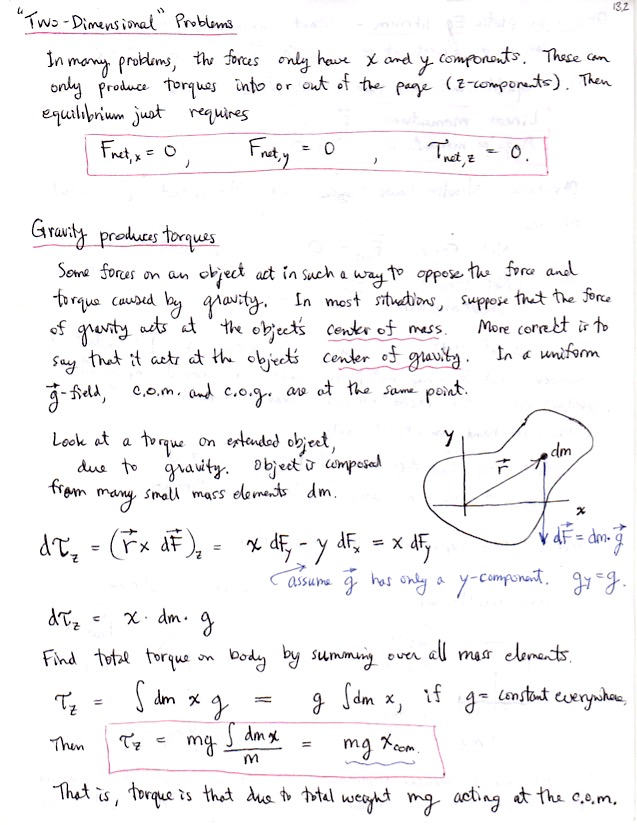 13.2
"Two-Dimensional" Problems
In many problems, the forces only have x and y components. These can
only produce torques into or out of the page (z-components). Then
equilibrium just requires
F_net,x = 0, F_net,y = 0, τ_net,z = 0.
Gravity produces torques
Some forces on an object act in such a way to oppose the force and
torque caused by gravity. In most situations, suppose that the force
of gravity acts at the object's center of mass. More correct is to
say that it acts at the object's center of gravity. In a uniform
g⃗-field, c.o.m. and c.o.g. are at the same point.
Look at a torque on extended object,
due to gravity. Object is composed
from many small mass elements dm.
y
r⃗
dm
x
dF⃗ = dm·g⃗
dτ_z = (r⃗ × dF⃗)_z = x dF_y - y dF_x = x dF_y
assume g⃗ has only a y-component. g_y = g.
dτ_z = x · dm · g
Find total torque on body by summing over all mass elements.
τ_z = ∫ dm x g = g ∫ dm x, if g = constant everywhere,
Then τ_z = mg ∫ dm x / m = mg x_com.
That is, torque is that due to total weight mg acting at the c.o.m.